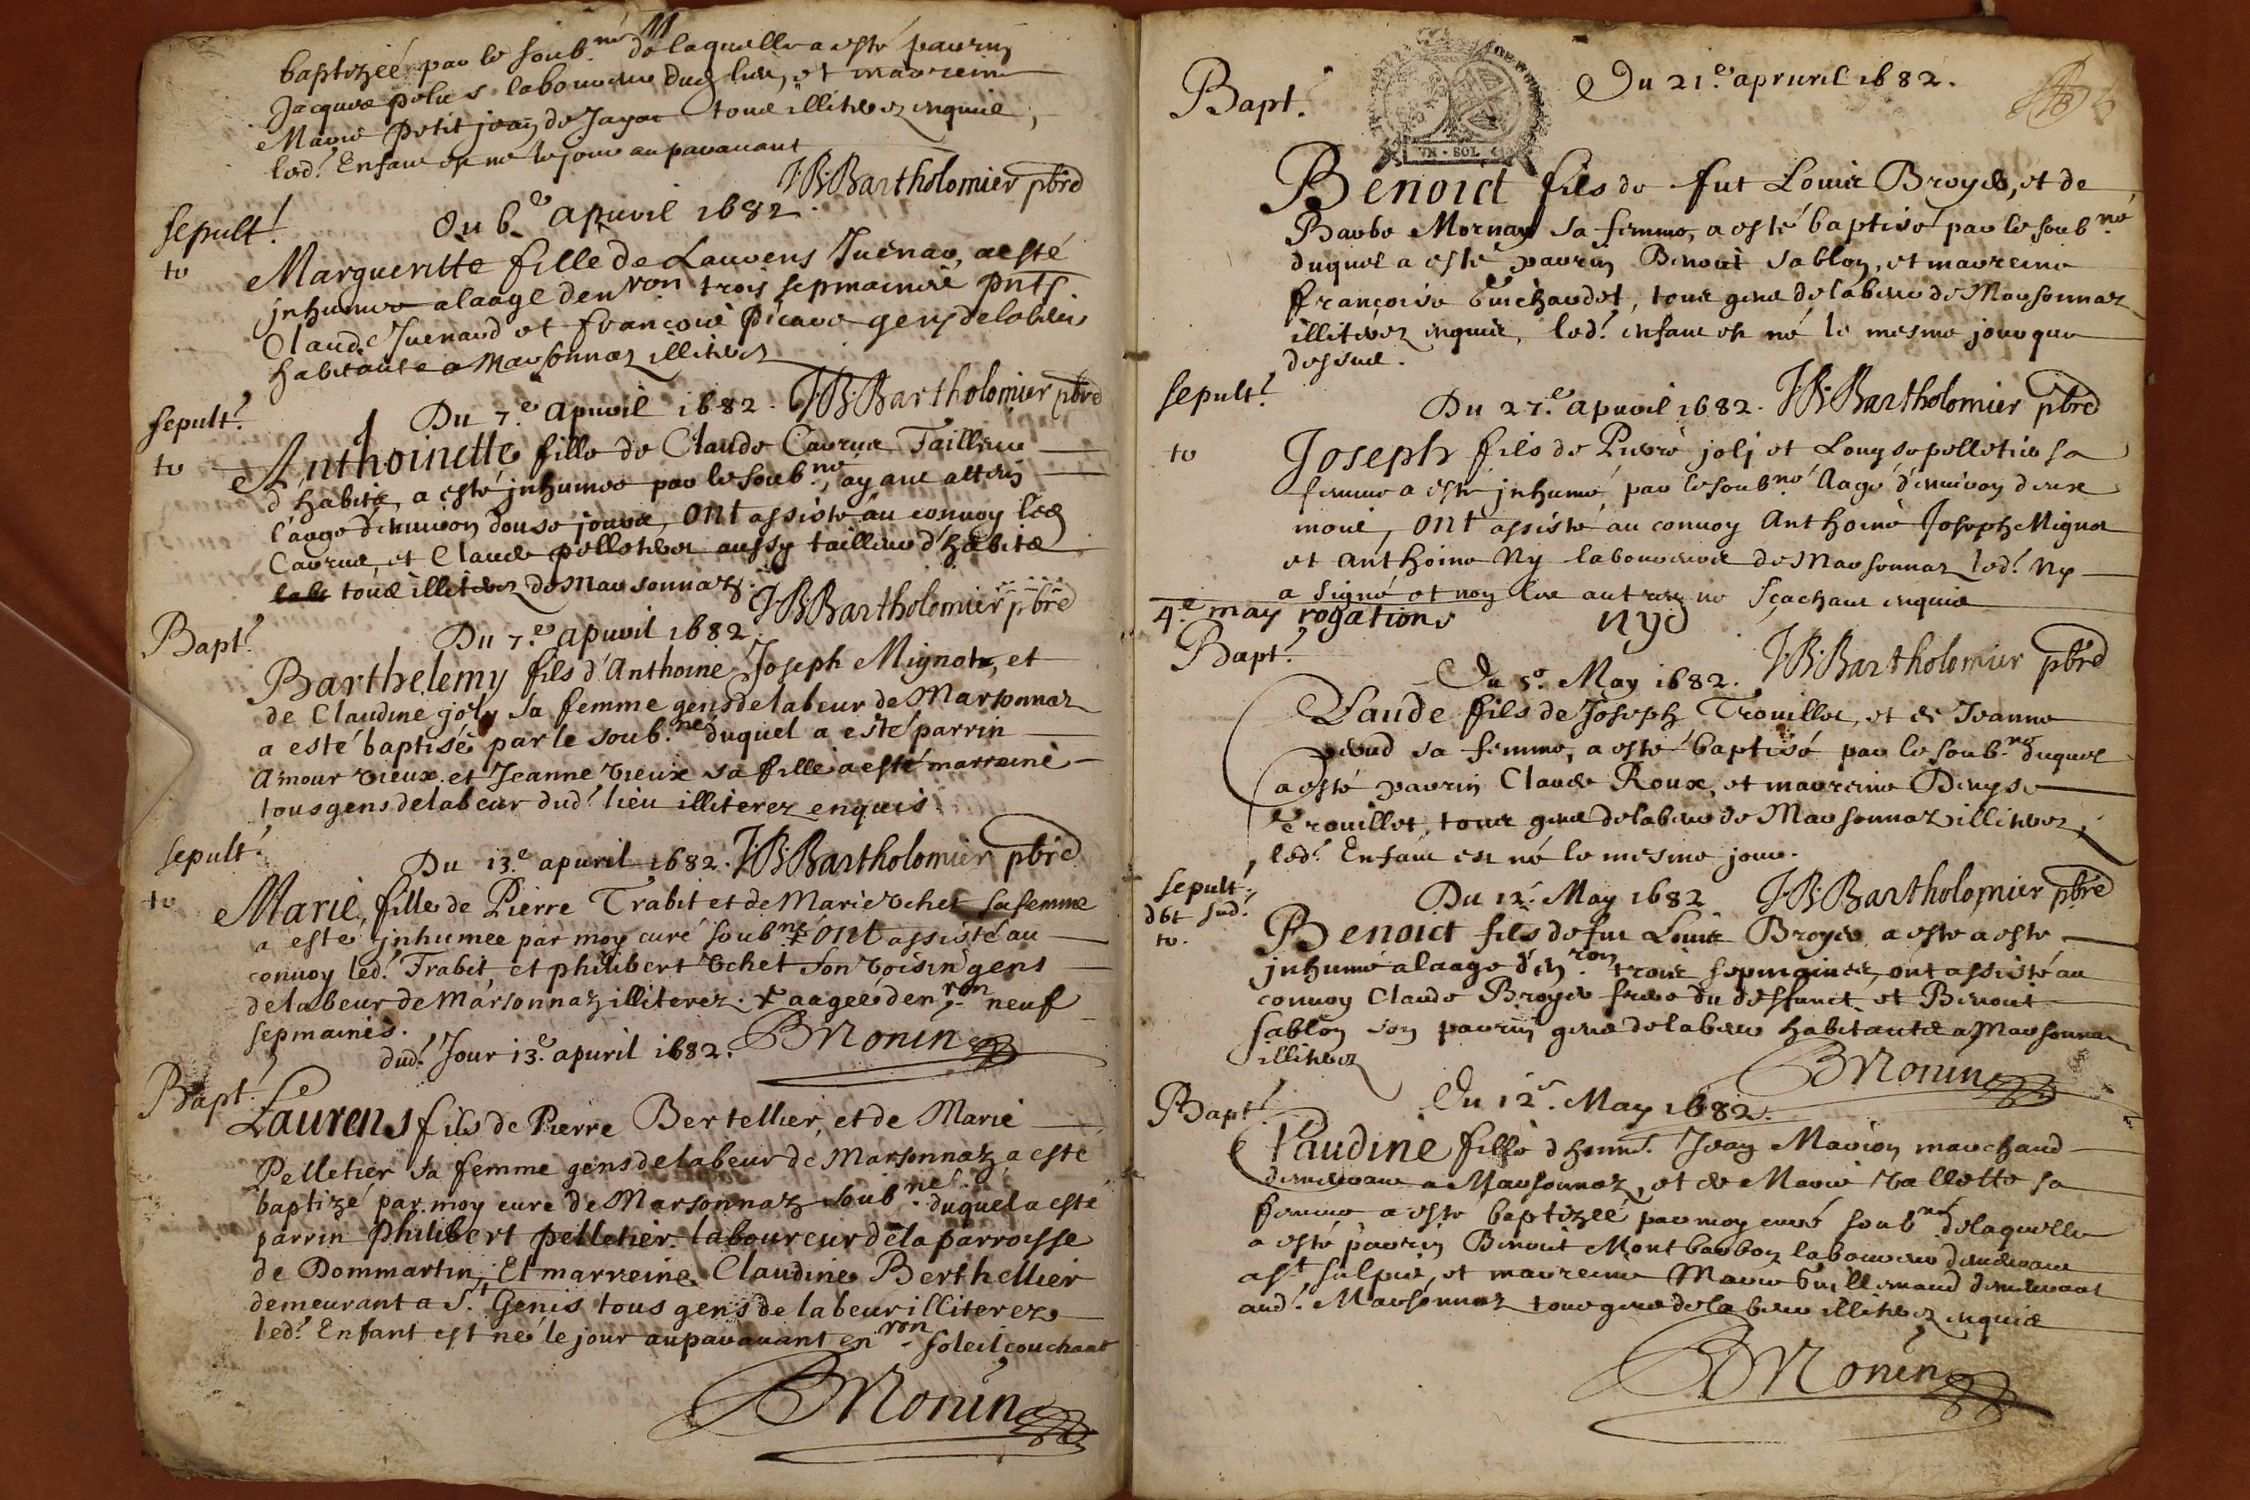 baptizée par le soub.né de laquelle a esté parrin
Jacques pelus laboureur dud. lieu, et marreine
Marie petit jean de Jayat tous illiterez enquis,
led.t Enfant est né le jour auparavant
J.B. Bartholomier pbre
sepult.
Du 6.e apuril 1682.
to
Margueritte fille de Laurens Juenar, a esté
jnhumée a laage d'en.ron trois sepmaines pnts
Claude Juenard et françois picard gens de labeur
habitants a Marsonnaz illiterez
sepult.e
Du 7.e apuril 1682. J.B. Bartholomier pbre
to
Anthoinette fille de Claude Carrue Tailleur
d'habits, a esté jnhumée par le soub.né, ayant atteint
l'aage d'environ douse jours, ont assisté au convoy led
Carrue, et Claude pelletier aussy tailleur d'habits
tous illiterez de Marsonnaz.
J.B. Bartholomier pbre
Bapt.e
Du 7.e apuril 1682.
Barthelemy fils d'Anthoine Joseph Mignot, et
de Claudine joly sa femme gens de labeur de Marsonnaz
a esté baptisé par le soub.né duquel a esté parrin
Amour vieux et Jeanne vieux sa fille a esté marreine
tous gens de labeur dud.t lieu illiterez enquis
sepult.e
Du 13.e apuril 1682. J.B. Bartholomier pbre
to
Marie, fille de Pierre Trabit et de Marie Vchet sa femme
a esté jnhumee par moy curé soub.né + ont assisté au
convoy led.t Trabit et philibert Vchet son voisin gens
de labeur de Marsonnaz illiterez. + aageé d'en.ron neuf
sepmaines.
BMonin
dud.t Jour 13.e apuril 1682.
Bapt.
Laurens fils de Pierre Bertellier, et de Marie
Pelletier sa femme gens de labeur de Marsonnaz a esté
baptizé par moy curé de Marsonnaz soub.né duquel a esté
parrin philibert pelletier laboureur de la parroisse
de Dommartin, Et marreine Claudine Berthellier
demeurant a S.t Genis tous gens de labeur illiterez
led.t Enfant est né le jour auparavant en.ron soleil couchant
BMonin
Bapt.e
Du 21.e apruril 1682.
VN · SOL
Benoict fils de fut Louis Broyer, et de
Barbe Mornay sa femme, a esté baptisé par le soub.né
duquel a esté parrin Benoit sablon, et marreine
françoise Guichardet, tous gens de labeur de Marsonnaz
illiterez enquis, led.t enfant est né le mesme jour que
dessus.
sepult.e
Du 27.e apuril 1682. J.B. Bartholomier pbre
to
Joseph fils de Pierre jolj et Louyse pelletier sa
femme a esté jnhumé par le soub.né aagé d'environ deux
mois, ont assisté au convoy Anthoine Joseph Mignot
et Anthoine Ny laboureurs de Marsonnaz led.t Ny
a signé et non les autres ne sçachant enquis
4.e may rogations
nyd
Bapt.e
Du 5.e May 1682. J.B. Bartholomier pbre
Claude fils de Joseph Trouillet, et de Jeanne
sa femme, a esté baptisé par le soub.né duquel
a esté parrin Claude Roux, et marreine Denyse
Trouillet, tous gens de labeur de Marsonnaz illiterez,
led.t Enfant est né le mesme jour.
sepult.
Du 12.e May 1682 J.B. Bartholomier pbre
dbt sud.t
to.
Benoict fils de fut Louis Broyer a esté a esté
jnhumé a laage d'en.ron trois sepmaines, ont assisté au
convoy Claude Broyer frere du deffunct et Benoit
sablon son parrin gens de labeur habitants a Marsonnaz
illiterez
BMonin
Bapt.e
Du 12.e May 1682.
Claudine fille d'honn.e Jean Marion marchand
demeurant a Marsonnaz, et de Marie Vallette sa
femme a esté baptizée par moy curé soub.né de laquelle
a esté parrin Benoit Montbarbon laboureur demeurant
a S.t sulpis, et marreine Marie Guillemaud demeurant
aud.t Marsonnaz tous gens de labeur illiterez enquis
BMonin